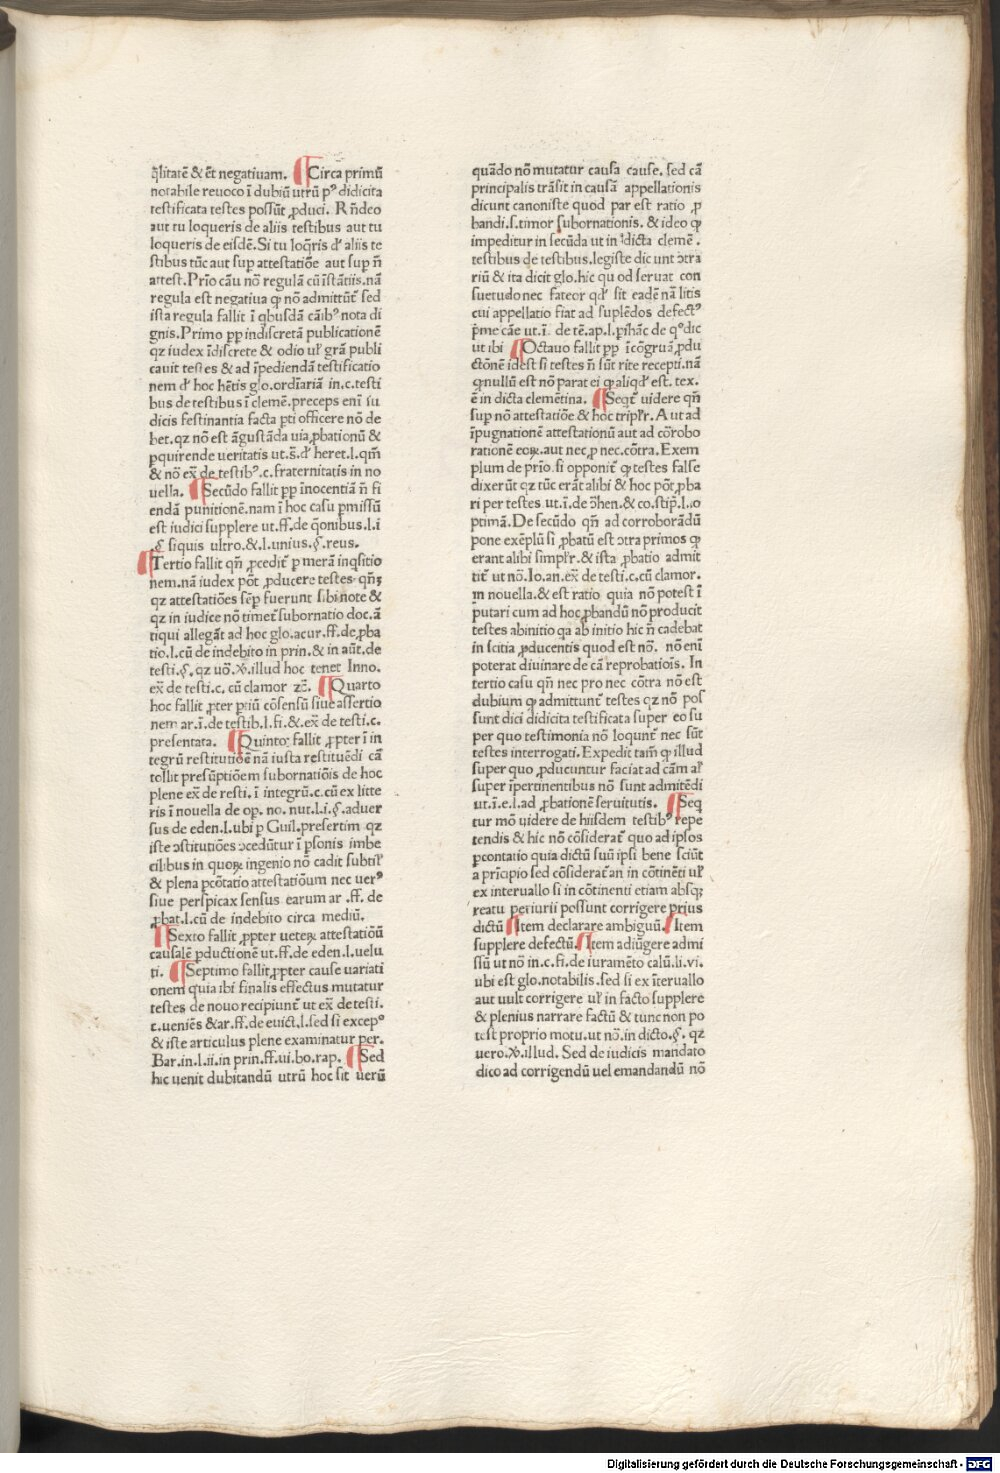 q̄litatē & ēt negatiuam. ¶ Circa primū
notabile reuoco ī dubiū utrū pꝰ didicita
testificata testes possūt ꝓduci. R ñdeo
aut tu loqueris de aliis testibus aut tu
loqueris de eisdē. Si tu loq̄ris đ aliis te
stibus tūc aut sup attestatiōe aut sup ñ
attest. Prīo cāu nō regulā cū īstātiis. nā
regula est negatiua ꝙ nō admittūt̄ sed
ista regula fallit ī qbusdā cāibꝰ nota di
gnis. Primo pp indiscretā publicationē
qz iudex īdiscrete & odio uł grā publi
cauit testes & ad īpediendā testificatio
nem đ hoc hētis glo. ordīariā in.c. testi
bus de testibus ī clemē. preceps enī iu
dicis festinantia facta pti officere nō de
bet. qz nō est āgustāda uia ꝓbationū &
pquirende ueritatis ut. s̄. đ heret. l. qm̄
& nō ex̄ de testibꝰ. c. fraternitatis in no
uella. ¶ Secūdo fallit pp īnocentiā ñ fi
endā punitionē. nam ī hoc casu pmissū
est iudici supplere ut. ff. de q̄onibus. l. i
§ siquis ultro. &. l. unius. §. reus.
¶ Tertio fallit qñ ꝓcedit̄ p merā inqsitio
nem. nā iudex pōt ꝓducere testes qñꝫ
qz attestatiōes sēp fuerunt sibi note &
qz in iudice nō timet̄ subornatio doc. ā
tiqui allegāt ad hoc glo. acur. ff. de ꝓba
tio. l. cū de indebito in prin. & in aūt. de
testi. §. qz uō. ꝟ. illud hoc tenet Inno.
ex̄ de testi. c. cū clamor zc̄. ¶ Quarto
hoc fallit ꝓter ptiū cōsensū siue assertio
nem ar. ī. de testib. l. fi. &. ex̄ de testi. c.
presentata. ¶ Quinto fallit ꝓpter ī in
tegrū restitutiōē nā iusta restituēdi cā
tollit presūptiōem subornatiōis de hoc
plene ex̄ de resti. ī integrū. c. cū ex litte
ris ī nouella de op. no. nut. l. i. §. aduer
sus de eden. l. ubi p Guil. presertim qz
iste ɔstitutiōes ɔcedūtur ī psonis imbe
cilibus in quoꝝ ingenio nō cadit subtił
& plena pcōtatio attestatiōum nec uerꝰ
siue perspicax sensus earum ar . ff. de
ꝓbat. l. cū de indebito circa mediū.
¶ Sexto fallit ꝓpter ueteꝝ attestatiōū
causalē ꝓductionē ut. ff. de eden. l. uelu
ti. ¶ Septimo fallit ꝓpter cause uariati
onem quia ibi finalis effectus mutatur
testes de nouo recipiunt̄ ut ex̄ de testi.
c. ueniēs & ar. ff. de euict. l. sed si excepº
& iste articulus plene examinatur per.
Bar. in. l. ii. in prin. ff. ui. bo. rap. ¶ Sed
hic uenit dubitandū utrū hoc sit uerū
quādo nō mutatur causa cause. sed cā
principalis trāsit in causā appellationis
dicunt canoniste quod par est ratio ꝓ
bandi. s. timor subornationis. & ideo ꝙ
impeditur in secūda ut in dicta clemē .
testibus de testibus. legiste dic unt ɔtra
riū & ita dicit glo. hic qu od seruat con
suetudo nec fateor qđ sit eadē nā litis
cui appellatio fiat ad suplēdos defectꝰ
p̄me cāe ut. ī. de tē. ap. l. p̄ihāc de qº dic
ut ibi ¶ Octauo fallit pp īcōgruā ꝓdu
ctōnē idest si testes ñ sūt rite recepti. nā
q nullū est nō parat ei ꝙ aliqđ est. tex.
ē in dicta clemētina. ¶ Seqt̄ uidere qñ
sup nō attestatiōe & hoc triplr̄. A ut ad
īpugnationē attestationū aut ad cōrobo
rationē eoꝝ. aut nec ꝓ nec. cōtra. Exem
plum de prīo. si opponit̄ ꝙ testes false
dixerūt qz tūc erāt alibi & hoc pōt ꝓba
ri per testes ut. ī. de ɔ̄hen. & co. stip̄. l. o
ptimā. De secūdo qñ ad corroborādū
pone exēplū si ꝓbatū est ɔtra primos ꝙ
erant alibi simplr̄. & ista ꝓbatio admit
tit̄ ut nō. Io. an. ex̄ de testi. c. cū clamor.
in nouella. & est ratio quia nō potest ī
putari cum ad hoc ꝓbandū nō producit
testes abinitio qa ab initio hic ñ cadebat
in scitia ꝓducentis quod est nō. nō enī
poterat diuinare de cā reprobatiois̄. In
tertio casu qñ nec pro nec cōtra nō est
dubium ꝙ admittunt̄ testes qz nō pos
sunt dici didicita testificata super eo su
per quo testimonia nō loqunt̄ nec sūt
testes interrogati. Expedit tam̄ ꝙ illud
super quo ꝓducuntur faciat ad cām ał
super īpertinentibus nō sunt admitēdi
ut. ī. e. l. ad ꝓbationē seruitutis. ¶ Seq
tur mō uidere de hiisdem testibꝰ repe
tendis & hic nō cōsiderat̄ quo ad ipsos
pcontatio quia dictū suū ipsi bene sciūt
a prīcipio sed cōsiderat̄ an in cōtinēti uł
ex interuallo si in cōtinenti etiam absqꝫ
reatu periurii possunt corrigere prius
dictū ¶ Item declarare ambiguū. ¶ Item
supplere defectū. ¶ Item adiūgere admi
ssū ut nō in. c. fi. de iuramēto calū. li. vi.
ubi est glo. notabilis. sed si ex īteruallo
aut uult corrigere uł in facto supplere
& plenius narrare factū & tunc non po
test proprio motu. ut nō. in dicto. §. qz
uero. ꝟ. illud. Sed de iudicis mandato
dico ad corrigendū uel emandandū nō
Digitalisierung gefördert durch die Deutsche Forschungsgemeinschaft - DFG